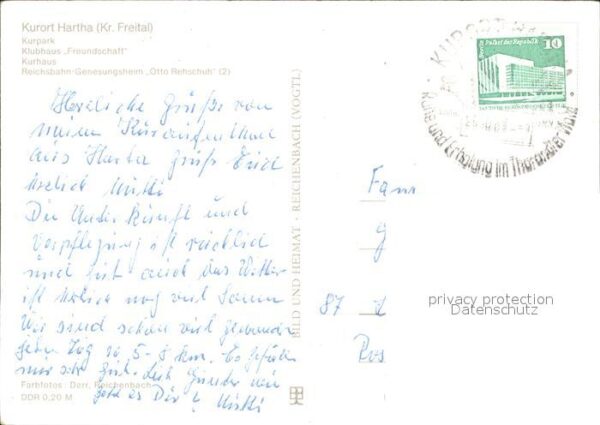 Kurort Hartha (Kr. Freital)
Kurpark
Klubhaus „Freundschaft"
Kurhaus
Reichsbahn-Genesungsheim „Otto Rehschuh" (2)
Herzliche Grüße von
meinem Kuraufenthalt
aus Hartha grüß Euch
herzlich Mutti
Die Unterkunft und
Verpflegung ist reichlich
und gut auch das Wetter
ist herrlich viel Sonne
Wir sind schon viel gewandert
jeden Tag so 5-8 km. Es gefällt
mir sehr gut. Günter wie
geht es Dir? Mutti
Farbfotos: Derr, Reichenbach
DDR 0,20 M
BILD UND HEIMAT · REICHENBACH (VOGTL)
KURORT
Ruhe und Erholung im Tharandter Wald
Palast der Republik
10
Fam
g
87
Pos
privacy protection
Datenschutz